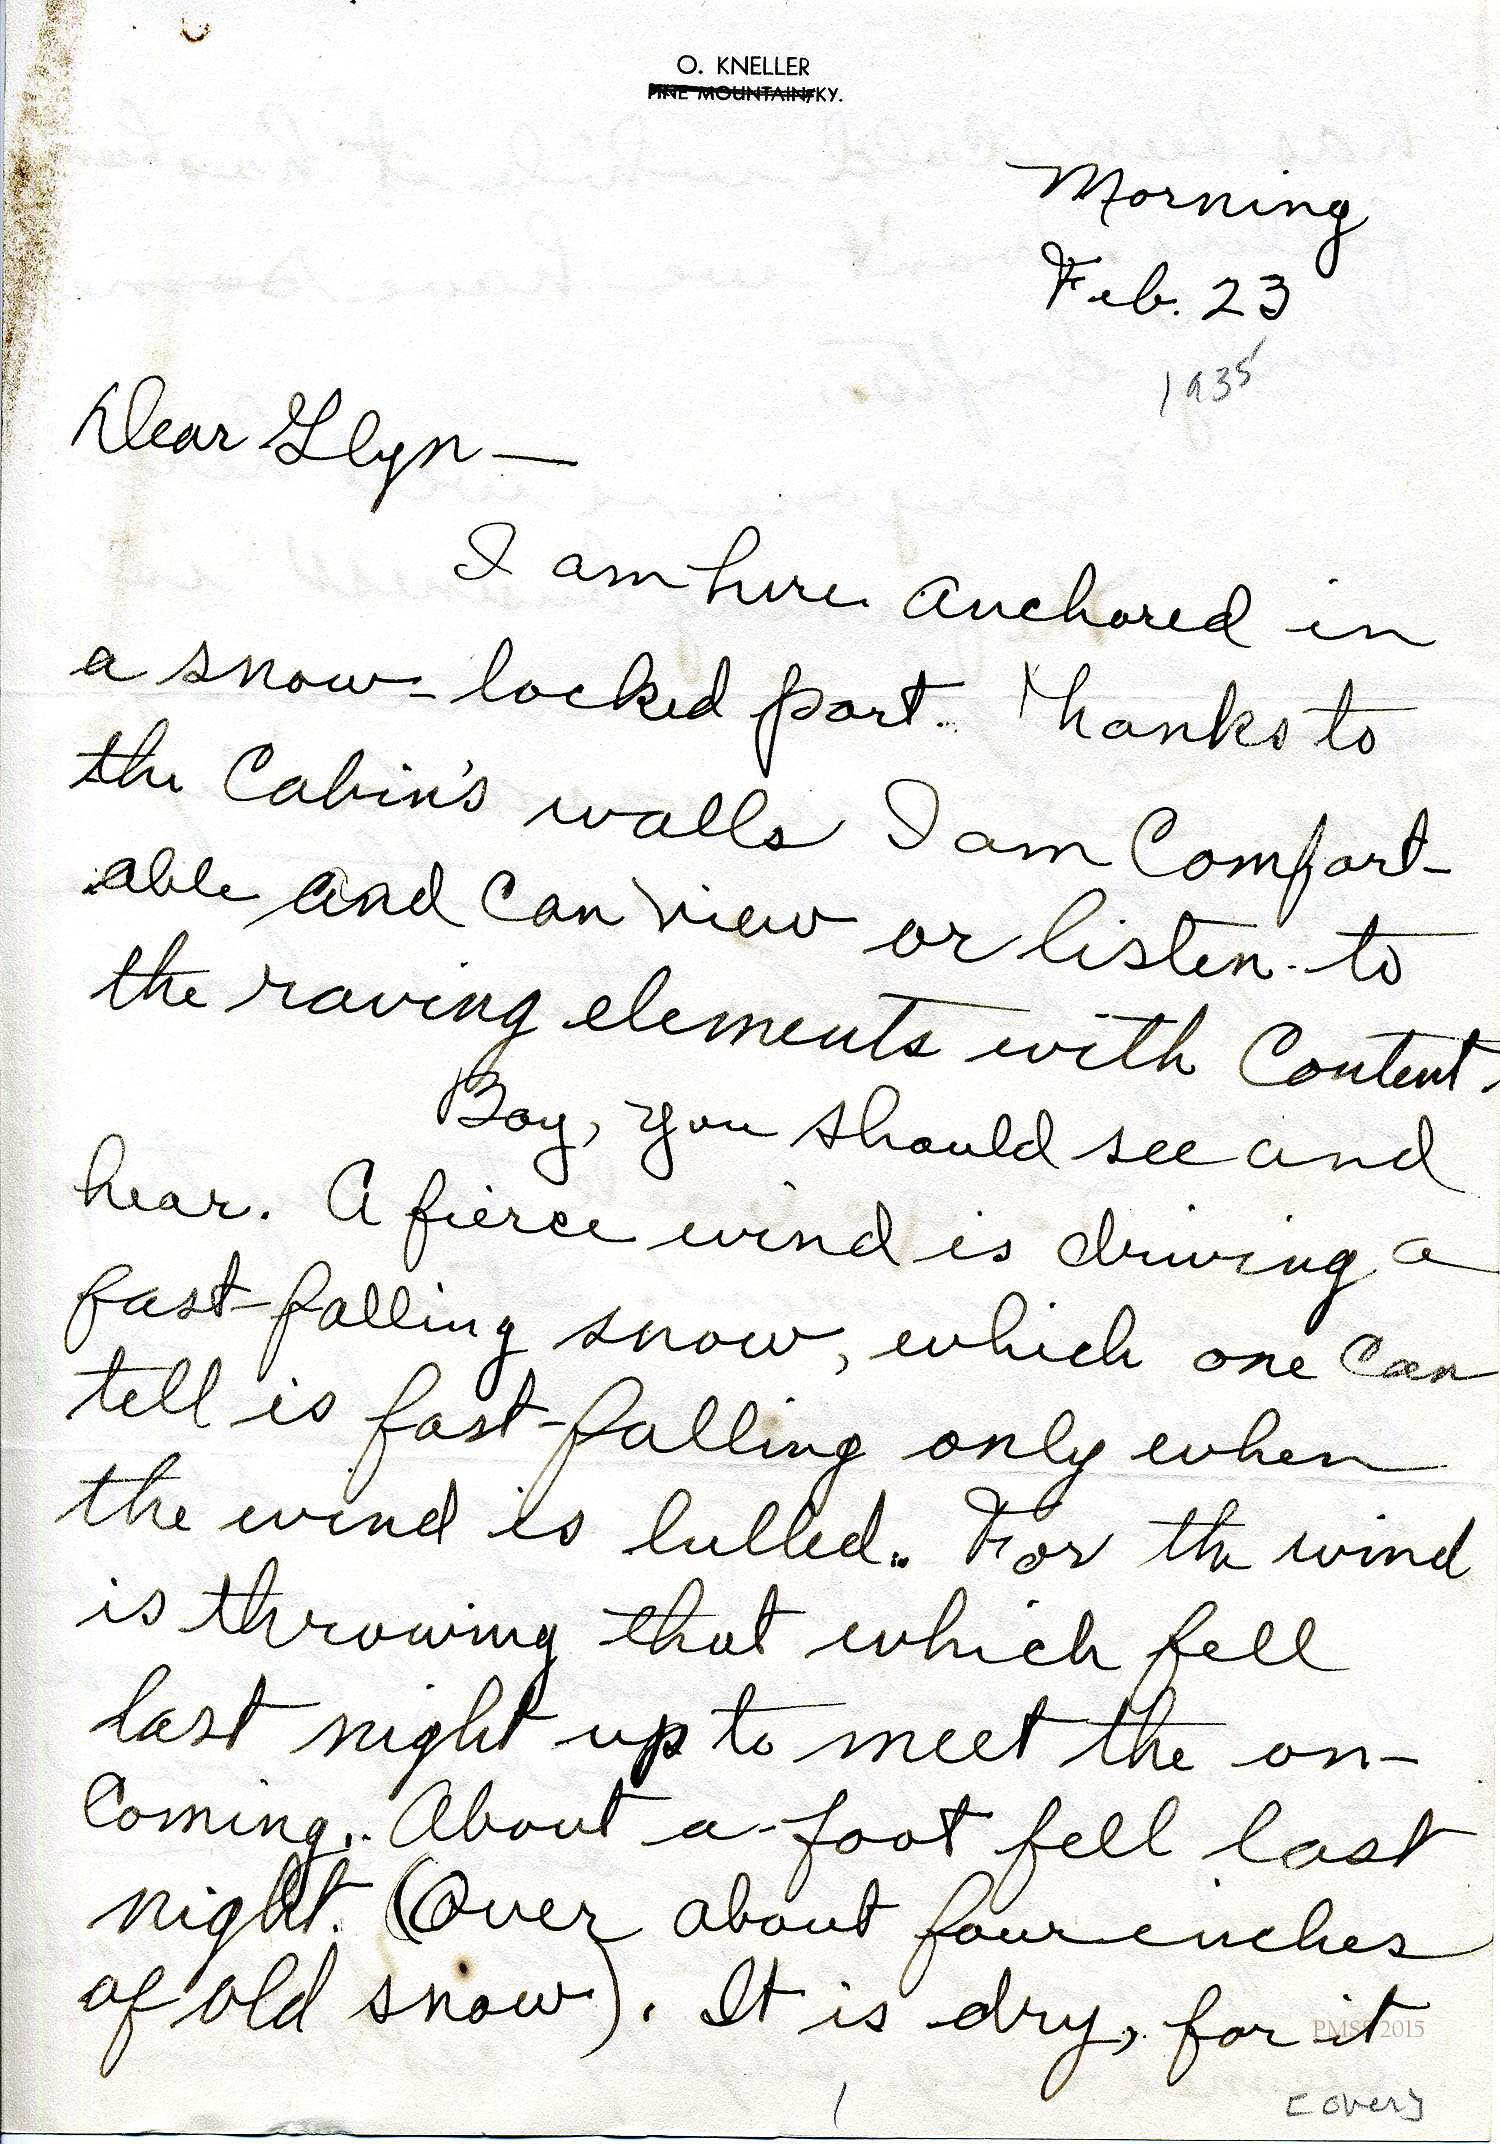 O. KNELLER
PINE MOUNTAIN, KY.
Morning
Feb. 23
1935
Dear Glyn —
I am here anchored in
a snow-locked port. Thanks to
the Cabin's walls I am Comfort-
able and Can view or listen to
the raving elements with Content.
Boy, you should see and
hear. A fierce wind is driving a
fast-falling snow, which one Can
tell is fast-falling only when
the wind is lulled. For the wind
is throwing that which fell
last night up to meet the on-
Coming. About a foot fell last
night. (Over about four inches
of old snow). It is dry, for it
PMSS 2015
1
[over]